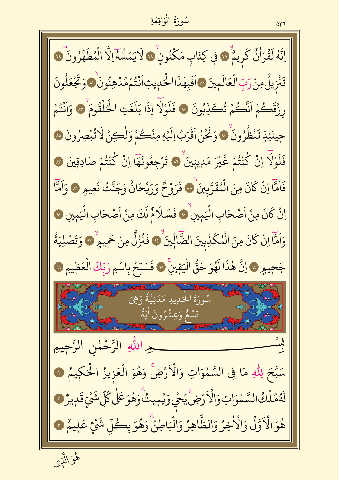 ٥٣٦ سُورَةُ الْوَاقِعَةِ
اِنَّهُ لَقُرْاٰنٌ كَرٖيمٌ ﴿٧٧﴾ فٖى كِتَابٍ مَكْنُونٍ ﴿٧٨﴾ لَا يَمَسُّهُٓ اِلَّا الْمُطَهَّرُونَ ﴿٧٩﴾
تَنْزٖيلٌ مِنْ رَبِّ الْعَالَمٖينَ ﴿٨٠﴾ اَفَبِهٰذَا الْحَدٖيثِ اَنْتُمْ مُدْهِنُونَ ﴿٨١﴾ وَتَجْعَلُونَ
رِزْقَكُمْ اَنَّكُمْ تُكَذِّبُونَ ﴿٨٢﴾ فَلَوْلَٓا اِذَا بَلَغَتِ الْحُلْقُومَ ﴿٨٣﴾ وَاَنْتُمْ
حٖينَئِذٍ تَنْظُرُونَ ﴿٨٤﴾ وَنَحْنُ اَقْرَبُ اِلَيْهِ مِنْكُمْ وَلٰكِنْ لَا تُبْصِرُونَ ﴿٨٥﴾
فَلَوْلَٓا اِنْ كُنْتُمْ غَيْرَ مَدٖينٖينَ ﴿٨٦﴾ تَرْجِعُونَهَٓا اِنْ كُنْتُمْ صَادِقٖينَ ﴿٨٧﴾
فَاَمَّٓا اِنْ كَانَ مِنَ الْمُقَرَّبٖينَ ﴿٨٨﴾ فَرَوْحٌ وَرَيْحَانٌ وَجَنَّتُ نَعٖيمٍ ﴿٨٩﴾ وَاَمَّٓا
اِنْ كَانَ مِنْ اَصْحَابِ الْيَمٖينِ ﴿٩٠﴾ فَسَلَامٌ لَكَ مِنْ اَصْحَابِ الْيَمٖينِ ﴿٩١﴾
وَاَمَّٓا اِنْ كَانَ مِنَ الْمُكَذِّبٖينَ الضَّٓالّٖينَ ﴿٩٢﴾ فَنُزُلٌ مِنْ حَمٖيمٍ ﴿٩٣﴾ وَتَصْلِيَةُ
جَحٖيمٍ ﴿٩٤﴾ اِنَّ هٰذَا لَهُوَ حَقُّ الْيَقٖينِ ﴿٩٥﴾ فَسَبِّحْ بِاسْمِ رَبِّكَ الْعَظٖيمِ ﴿٩٦﴾
سُورَةُ الْحَدٖيدِ مَدَنِيَّةٌ وَهِىَ
تِسْعٌ وَعِشْرُونَ اٰيَةً
بِسْمِ اللّٰهِ الرَّحْمٰنِ الرَّحٖيمِ
سَبَّحَ لِلّٰهِ مَا فِى السَّمٰوَاتِ وَالْاَرْضِ وَهُوَ الْعَزٖيزُ الْحَكٖيمُ ﴿١﴾
لَهُ مُلْكُ السَّمٰوَاتِ وَالْاَرْضِ يُحْيٖ وَيُمٖيتُ وَهُوَ عَلٰى كُلِّ شَىْءٍ قَدٖيرٌ ﴿٢﴾
هُوَ الْاَوَّلُ وَالْاٰخِرُ وَالظَّاهِرُ وَالْبَاطِنُ وَهُوَ بِكُلِّ شَىْءٍ عَلٖيمٌ ﴿٣﴾
هُوَ الَّذٖى